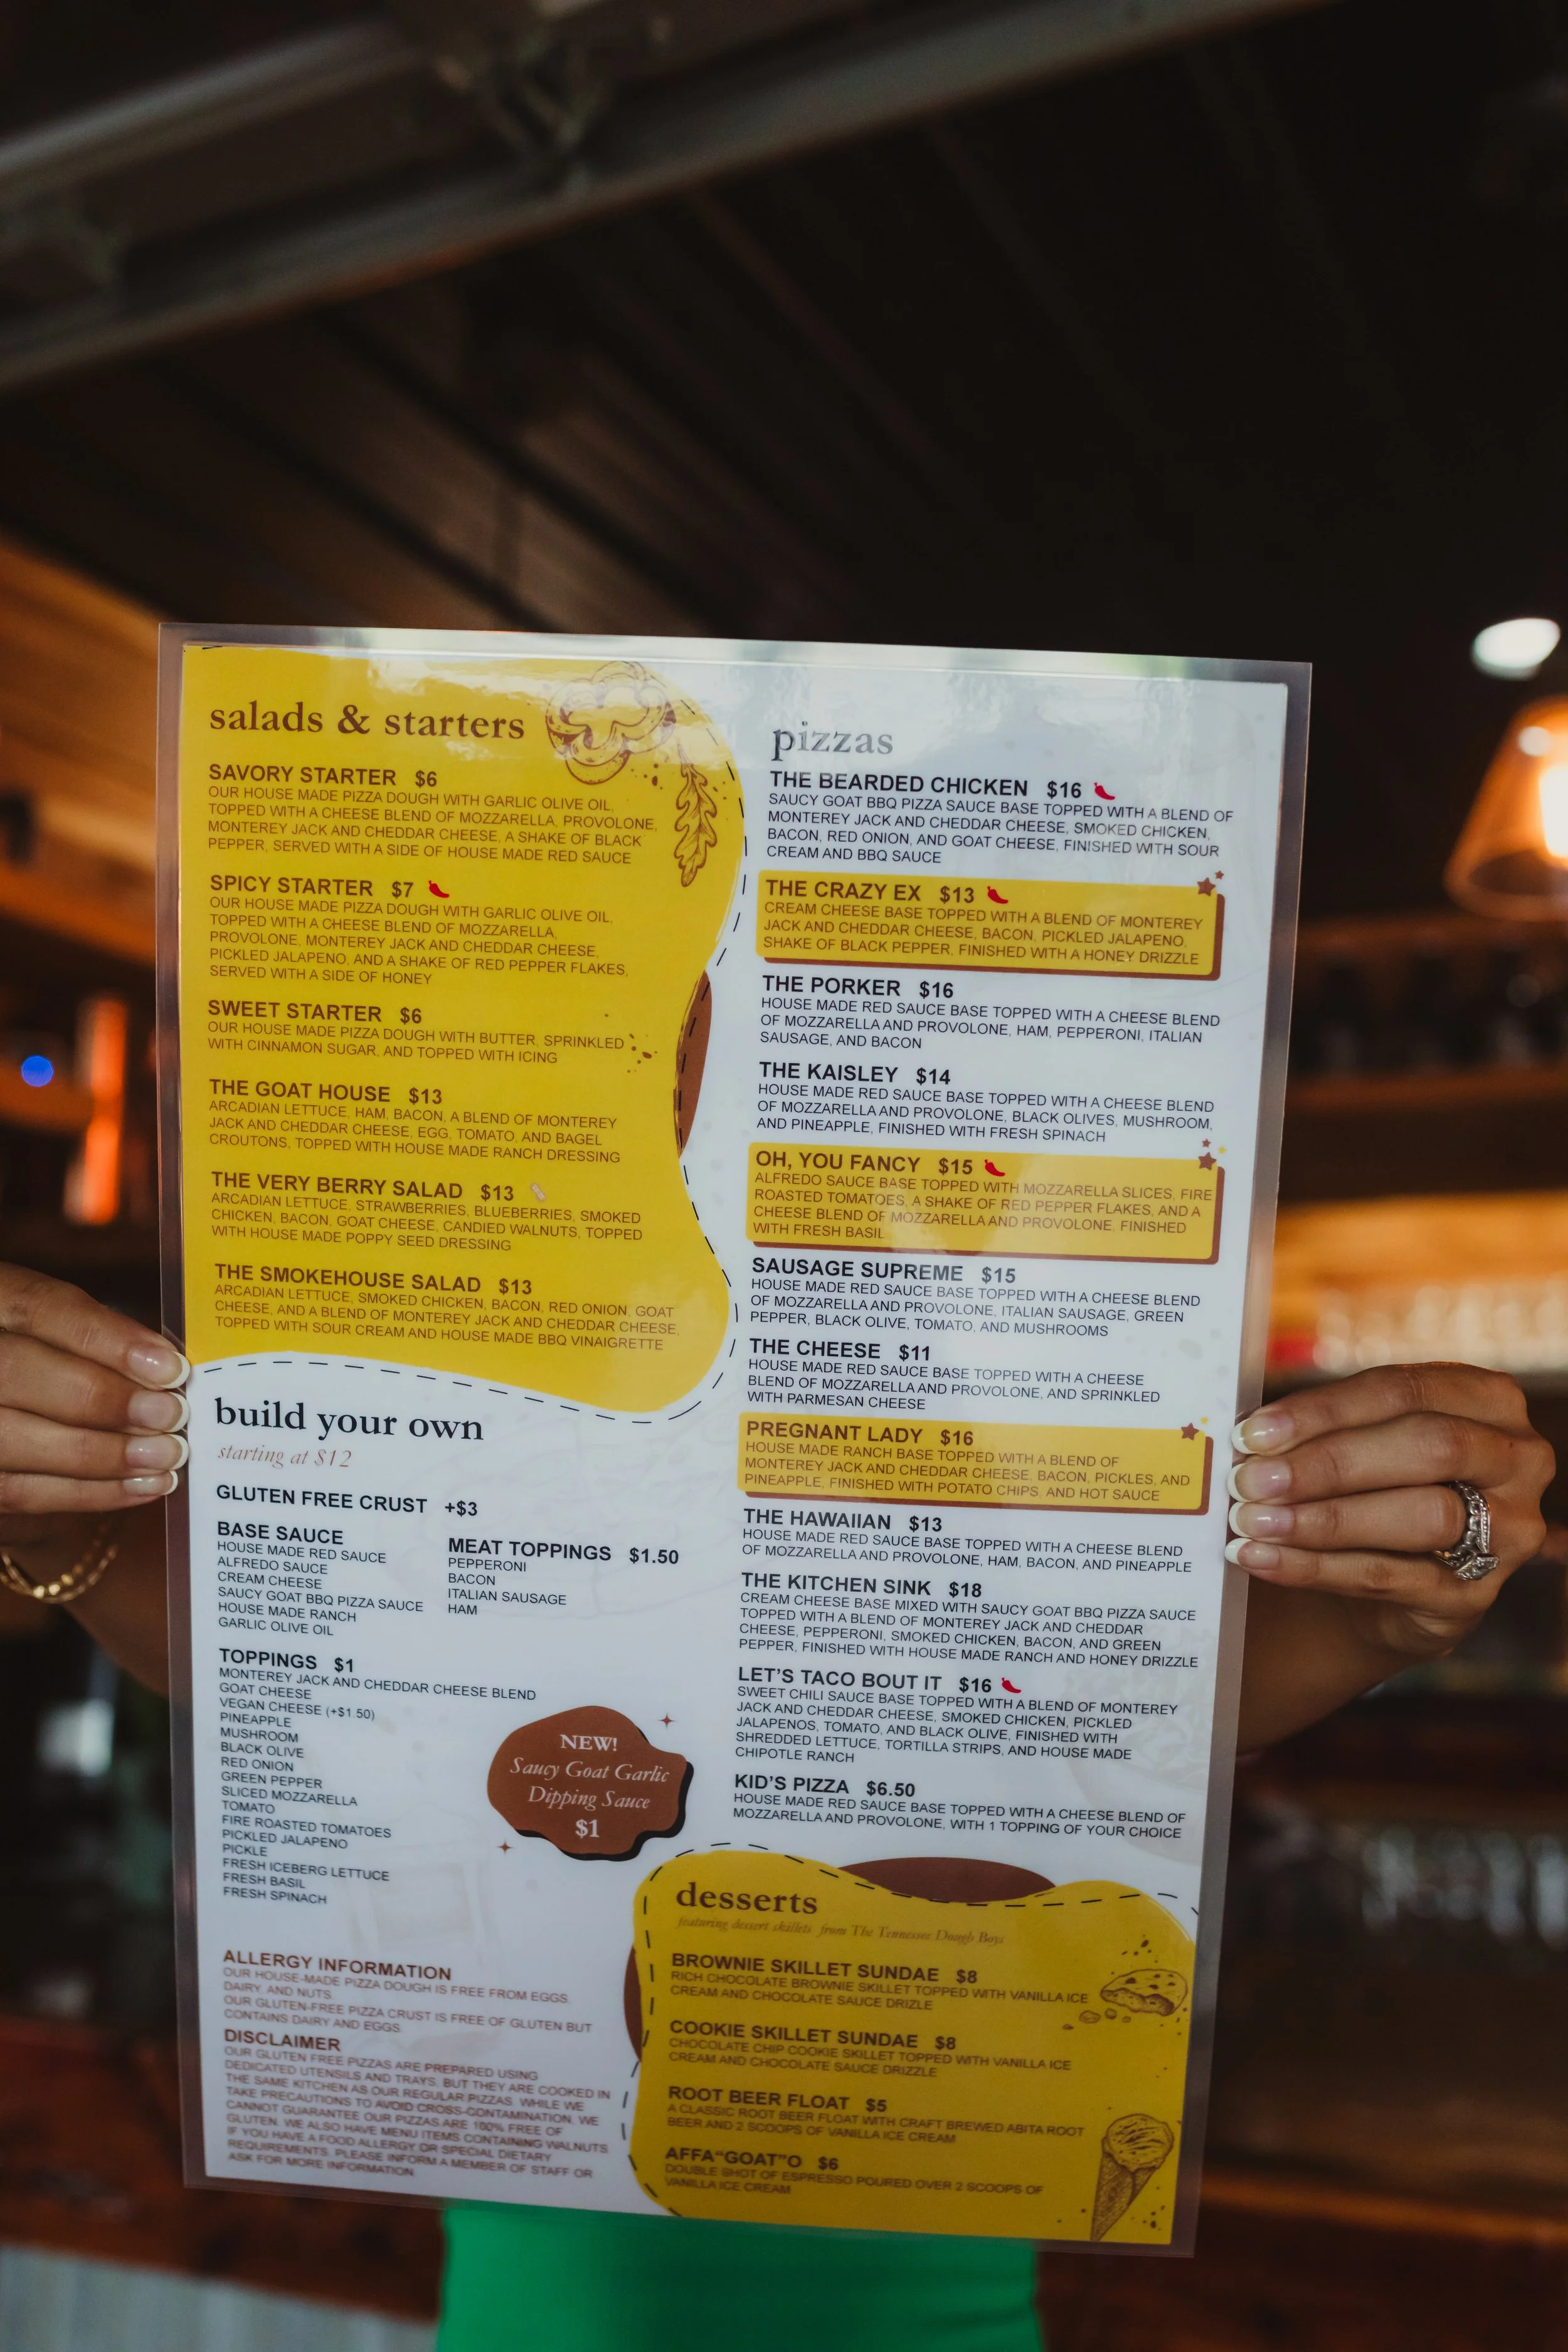 salads & starters
SAVORY STARTER $6
OUR HOUSE MADE PIZZA DOUGH WITH GARLIC OLIVE OIL,
TOPPED WITH A CHEESE BLEND OF MOZZARELLA, PROVOLONE,
MONTEREY JACK AND CHEDDAR CHEESE, A SHAKE OF BLACK
PEPPER, SERVED WITH A SIDE OF HOUSE MADE RED SAUCE
SPICY STARTER $7
OUR HOUSE MADE PIZZA DOUGH WITH GARLIC OLIVE OIL,
TOPPED WITH A CHEESE BLEND OF MOZZARELLA,
PROVOLONE, MONTEREY JACK AND CHEDDAR CHEESE,
PICKLED JALAPENO, AND A SHAKE OF RED PEPPER FLAKES,
SERVED WITH A SIDE OF HONEY
SWEET STARTER $6
OUR HOUSE MADE PIZZA DOUGH WITH BUTTER, SPRINKLED
WITH CINNAMON SUGAR, AND TOPPED WITH ICING
THE GOAT HOUSE $13
ARCADIAN LETTUCE, HAM, BACON, A BLEND OF MONTEREY
JACK AND CHEDDAR CHEESE, EGG, TOMATO, AND BAGEL
CROUTONS, TOPPED WITH HOUSE MADE RANCH DRESSING
THE VERY BERRY SALAD $13
ARCADIAN LETTUCE, STRAWBERRIES, BLUEBERRIES, SMOKED
CHICKEN, BACON, GOAT CHEESE, CANDIED WALNUTS, TOPPED
WITH HOUSE MADE POPPY SEED DRESSING
THE SMOKEHOUSE SALAD $13
ARCADIAN LETTUCE, SMOKED CHICKEN, BACON, RED ONION, GOAT
CHEESE, AND A BLEND OF MONTEREY JACK AND CHEDDAR CHEESE,
TOPPED WITH SOUR CREAM AND HOUSE MADE BBQ VINAIGRETTE
build your own
starting at $12
GLUTEN FREE CRUST +$3
BASE SAUCE
HOUSE MADE RED SAUCE
ALFREDO SAUCE
CREAM CHEESE
SAUCY GOAT BBQ PIZZA SAUCE
HOUSE MADE RANCH
GARLIC OLIVE OIL
MEAT TOPPINGS $1.50
PEPPERONI
BACON
ITALIAN SAUSAGE
HAM
TOPPINGS $1
MONTEREY JACK AND CHEDDAR CHEESE BLEND
GOAT CHEESE
VEGAN CHEESE (+$1.50)
PINEAPPLE
MUSHROOM
BLACK OLIVE
RED ONION
GREEN PEPPER
SLICED MOZZARELLA
TOMATO
FIRE ROASTED TOMATOES
PICKLED JALAPENO
PICKLE
FRESH ICEBERG LETTUCE
FRESH BASIL
FRESH SPINACH
NEW!
Saucy Goat Garlic
Dipping Sauce
$1
ALLERGY INFORMATION
OUR HOUSE-MADE PIZZA DOUGH IS FREE FROM EGGS,
DAIRY, AND NUTS
OUR GLUTEN-FREE PIZZA CRUST IS FREE OF GLUTEN BUT
CONTAINS DAIRY AND EGGS
DISCLAIMER
OUR GLUTEN FREE PIZZAS ARE PREPARED USING
DEDICATED UTENSILS AND TRAYS, BUT THEY ARE COOKED IN
THE SAME KITCHEN AS OUR REGULAR PIZZAS. WHILE WE
TAKE PRECAUTIONS TO AVOID CROSS-CONTAMINATION, WE
CANNOT GUARANTEE OUR PIZZAS ARE 100% FREE OF
GLUTEN. WE ALSO HAVE MENU ITEMS CONTAINING WALNUTS.
IF YOU HAVE A FOOD ALLERGY OR SPECIAL DIETARY
REQUIREMENTS, PLEASE INFORM A MEMBER OF STAFF OR
ASK FOR MORE INFORMATION.
pizzas
THE BEARDED CHICKEN $16
SAUCY GOAT BBQ PIZZA SAUCE BASE TOPPED WITH A BLEND OF
MONTEREY JACK AND CHEDDAR CHEESE, SMOKED CHICKEN,
BACON, RED ONION, AND GOAT CHEESE, FINISHED WITH SOUR
CREAM AND BBQ SAUCE
THE CRAZY EX $13
CREAM CHEESE BASE TOPPED WITH A BLEND OF MONTEREY
JACK AND CHEDDAR CHEESE, BACON, PICKLED JALAPENO,
SHAKE OF BLACK PEPPER, FINISHED WITH A HONEY DRIZZLE
THE PORKER $16
HOUSE MADE RED SAUCE BASE TOPPED WITH A CHEESE BLEND
OF MOZZARELLA AND PROVOLONE, HAM, PEPPERONI, ITALIAN
SAUSAGE, AND BACON
THE KAISLEY $14
HOUSE MADE RED SAUCE BASE TOPPED WITH A CHEESE BLEND
OF MOZZARELLA AND PROVOLONE, BLACK OLIVES, MUSHROOM,
AND PINEAPPLE, FINISHED WITH FRESH SPINACH
OH, YOU FANCY $15
ALFREDO SAUCE BASE TOPPED WITH MOZZARELLA SLICES, FIRE
ROASTED TOMATOES, A SHAKE OF RED PEPPER FLAKES, AND A
CHEESE BLEND OF MOZZARELLA AND PROVOLONE, FINISHED
WITH FRESH BASIL
SAUSAGE SUPREME $15
HOUSE MADE RED SAUCE BASE TOPPED WITH A CHEESE BLEND
OF MOZZARELLA AND PROVOLONE, ITALIAN SAUSAGE, GREEN
PEPPER, BLACK OLIVE, TOMATO, AND MUSHROOMS
THE CHEESE $11
HOUSE MADE RED SAUCE BASE TOPPED WITH A CHEESE
BLEND OF MOZZARELLA AND PROVOLONE, AND SPRINKLED
WITH PARMESAN CHEESE
PREGNANT LADY $16
HOUSE MADE RANCH BASE TOPPED WITH A BLEND OF
MONTEREY JACK AND CHEDDAR CHEESE, BACON, PICKLES, AND
PINEAPPLE, FINISHED WITH POTATO CHIPS, AND HOT SAUCE
THE HAWAIIAN $13
HOUSE MADE RED SAUCE BASE TOPPED WITH A CHEESE BLEND
OF MOZZARELLA AND PROVOLONE, HAM, BACON, AND PINEAPPLE
THE KITCHEN SINK $18
CREAM CHEESE BASE MIXED WITH SAUCY GOAT BBQ PIZZA SAUCE
TOPPED WITH A BLEND OF MONTEREY JACK AND CHEDDAR
CHEESE, PEPPERONI, SMOKED CHICKEN, BACON, AND GREEN
PEPPER, FINISHED WITH HOUSE MADE RANCH AND HONEY DRIZZLE
LET'S TACO BOUT IT $16
SWEET CHILI SAUCE BASE TOPPED WITH A BLEND OF MONTEREY
JACK AND CHEDDAR CHEESE, SMOKED CHICKEN, PICKLED
JALAPENOS, TOMATO, AND BLACK OLIVE, FINISHED WITH
SHREDDED LETTUCE, TORTILLA STRIPS, AND HOUSE MADE
CHIPOTLE RANCH
KID'S PIZZA $6.50
HOUSE MADE RED SAUCE BASE TOPPED WITH A CHEESE BLEND OF
MOZZARELLA AND PROVOLONE, WITH 1 TOPPING OF YOUR CHOICE
desserts
featuring dessert skillets from The Tennessee Dough Boys
BROWNIE SKILLET SUNDAE $8
RICH CHOCOLATE BROWNIE SKILLET TOPPED WITH VANILLA ICE
CREAM AND CHOCOLATE SAUCE DRIZLE
COOKIE SKILLET SUNDAE $8
CHOCOLATE CHIP COOKIE SKILLET TOPPED WITH VANILLA ICE
CREAM AND CHOCOLATE SAUCE DRIZZLE
ROOT BEER FLOAT $5
A CLASSIC ROOT BEER FLOAT WITH CRAFT BREWED ABITA ROOT
BEER AND 2 SCOOPS OF VANILLA ICE CREAM
AFFA"GOAT"O $6
DOUBLE SHOT OF ESPRESSO POURED OVER 2 SCOOPS OF
VANILLA ICE CREAM